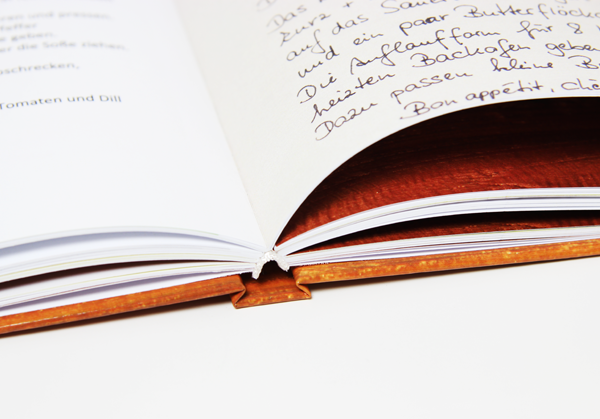 ren und pressen
feffer
geben,
er die Soße ziehen.
bschrecken,
Tomaten und Dill
Das
kurz +
auf das Sauer
und ein paar Butterflöck
Die Auflaufform für 8
heizten Backofen geben
Dazu passen kleine B
Bon appétit, Ché